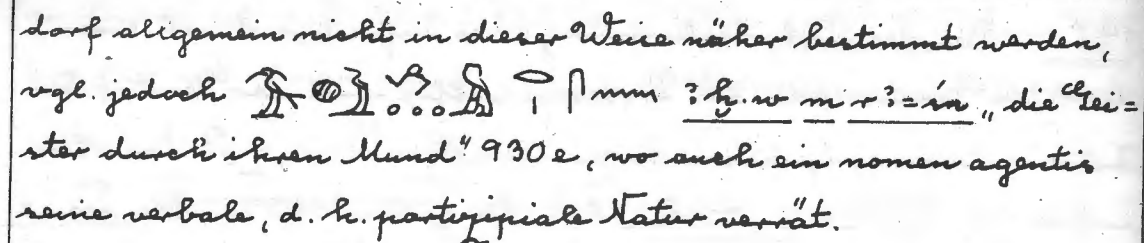 darf allgemein nicht in dieser Weise näher bestimmt werden,
vgl. jedoch ꜣḫ.w m rꜣ=śn „die Gei=
ster durch ihren Mund“ 930e, wo auch ein nomen agentis
seine verbale, d. h. partizipiale Natur verrät.